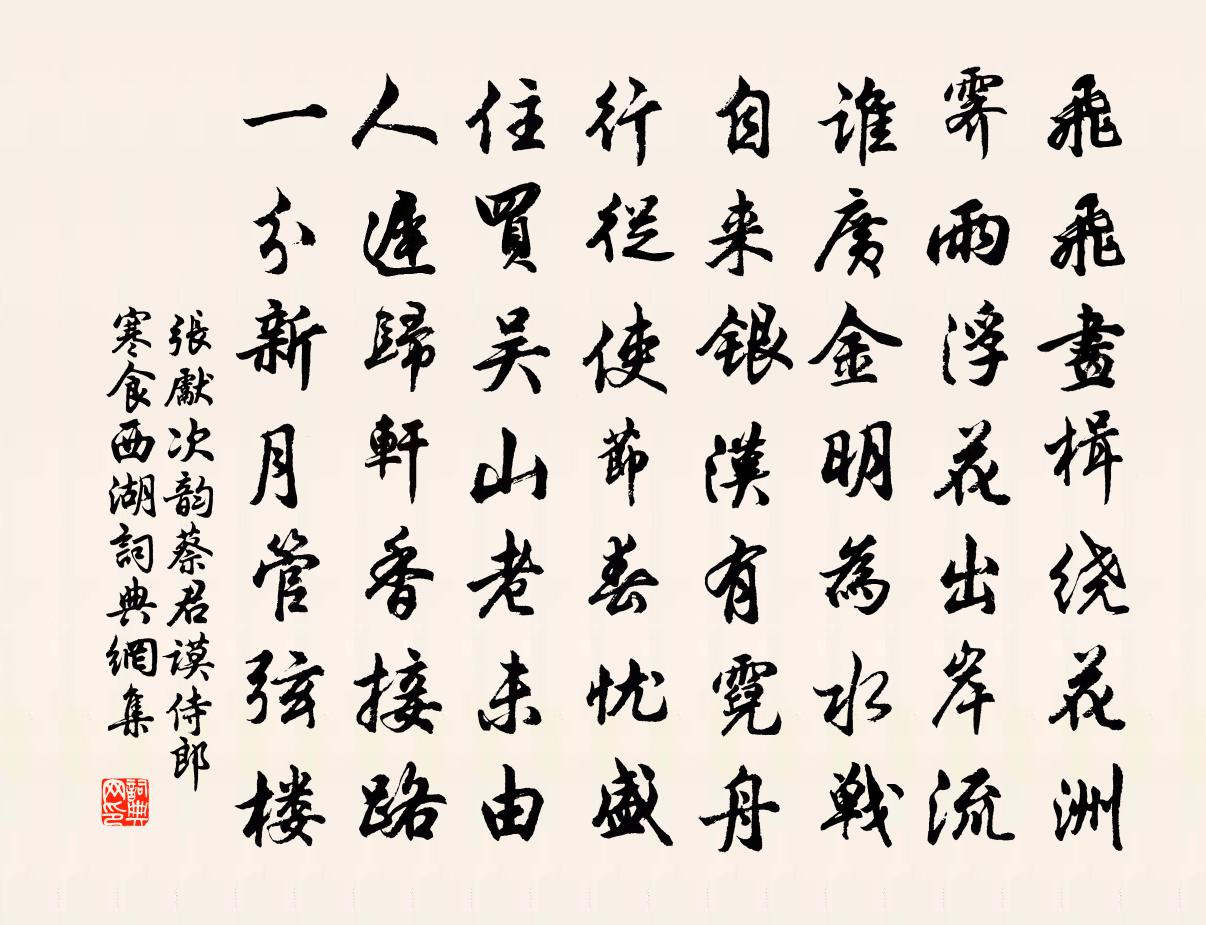 飛飛畫楫绕花洲
霁雨浮花出岸流
誰廣金明為水戰
自来銀漢有霓舟
行從使節春忧盛
住買吴山老未由
人遲歸軒香接路
一分新月管弦楼
張獻次韵蔡君謨侍郎
寒食西湖詞典網集
詞典网印